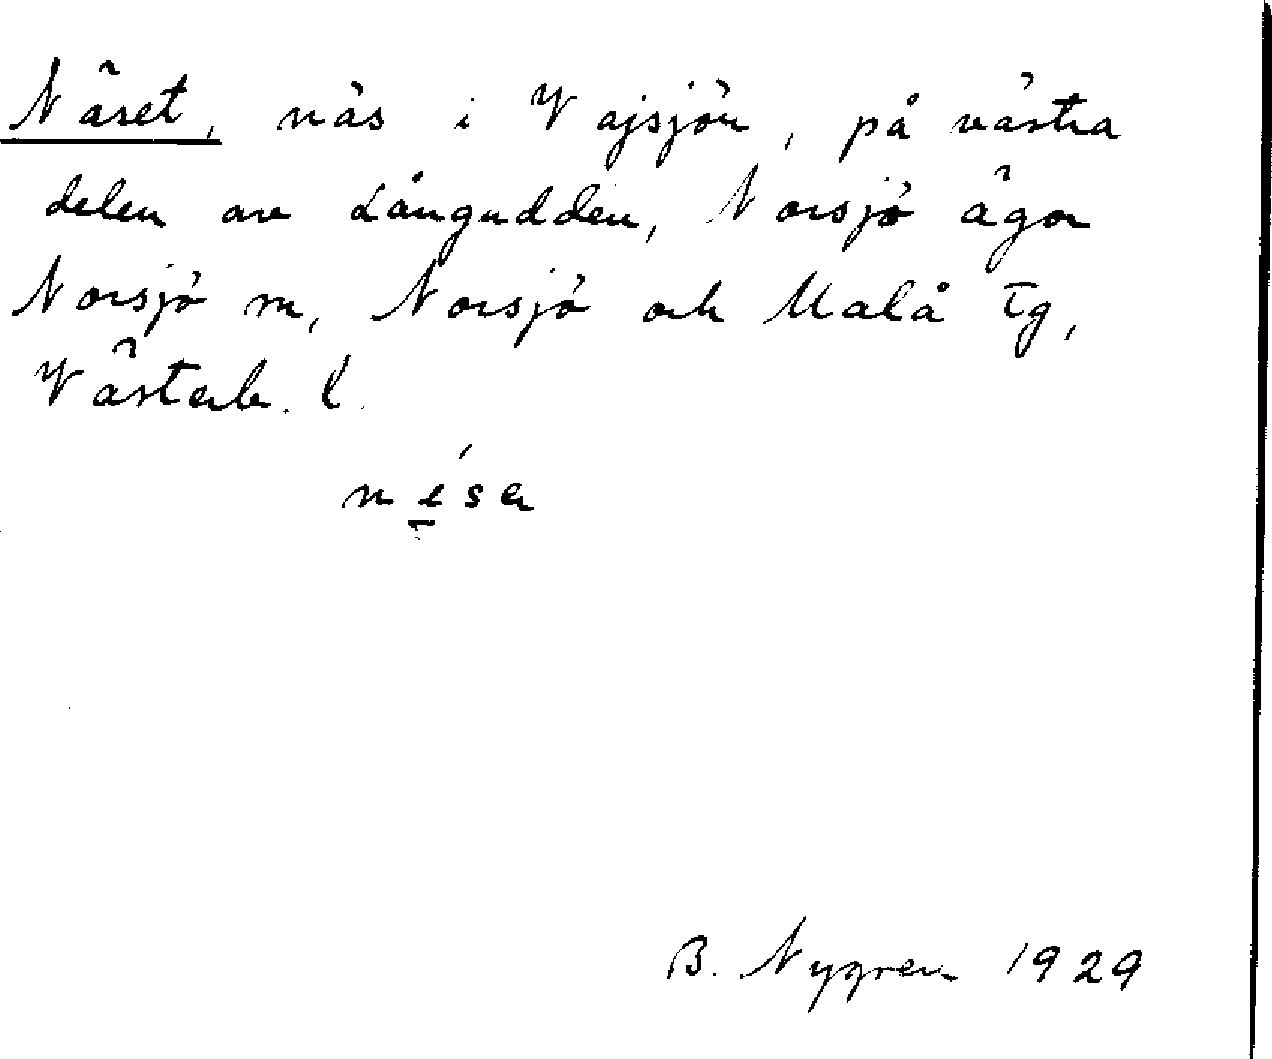 Näset, näs i Vajsjön, på västra
delen av Långudden, Norsjö ägor
Norsjö sn, Norsjö och Malå tg,
Västerb. l.
B. Nygren 1929